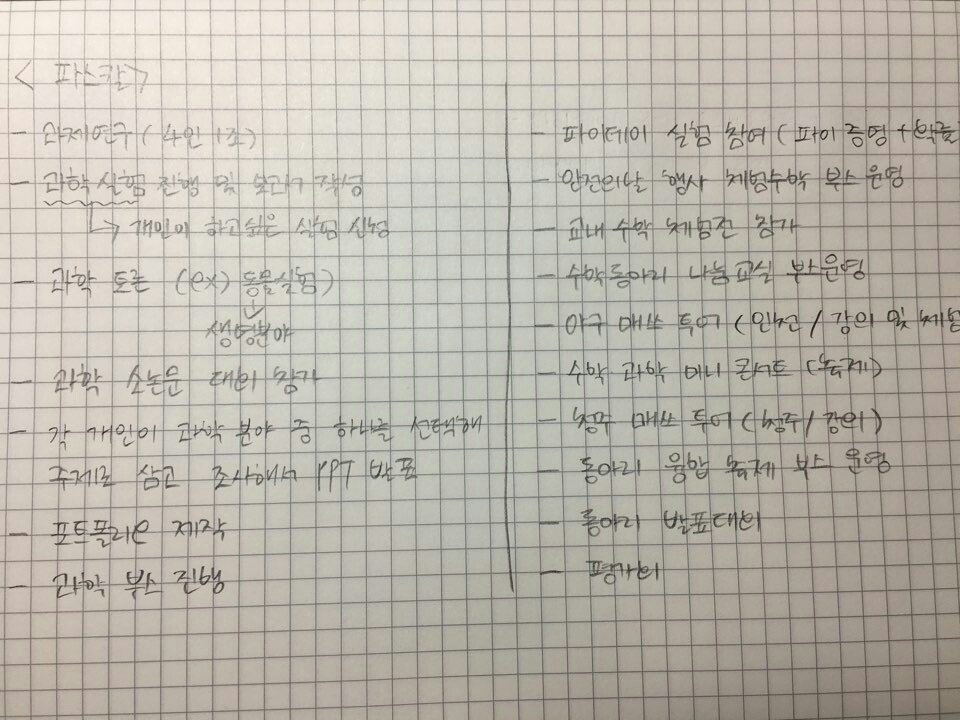 < 파스칼 >
- 과제연구 ( 4인 1조 )
- 과학 실험 진행 및 보고서 작성
↳ 개인이 하고싶은 실험 신청
- 과학 토론 (ex) 동물실험)
생명분야
- 과학 소논문 대회 참가
- 각 개인이 과학 분야 중 하나를 선택해
주제로 삼고 조사해서 PPT 발표
- 포트폴리오 제작
- 과학 부스 진행
- 파이데이 실험 참여 ( 파이 증명 +
- 안전의날 행사 체험수학 부스 운영
- 교내 수학 체험전 참가
- 수학동아리 나눔교실 부스운영
- 야구 매쓰 투어 ( 인천 / 강의 및 체험
- 수학 과학 미니 콘서트 (축제)
- 청주 매쓰 투어 ( 청주 / 강의 )
- 동아리 융합 축제 부스 운영
- 동아리 발표대회
- 평가회